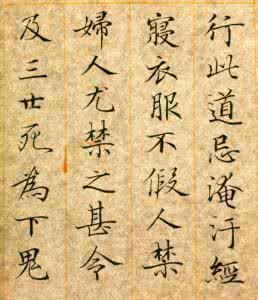 行此道忌淹汙經
寢衣服不假人禁
婦人尤禁之甚令
及三世死為下鬼